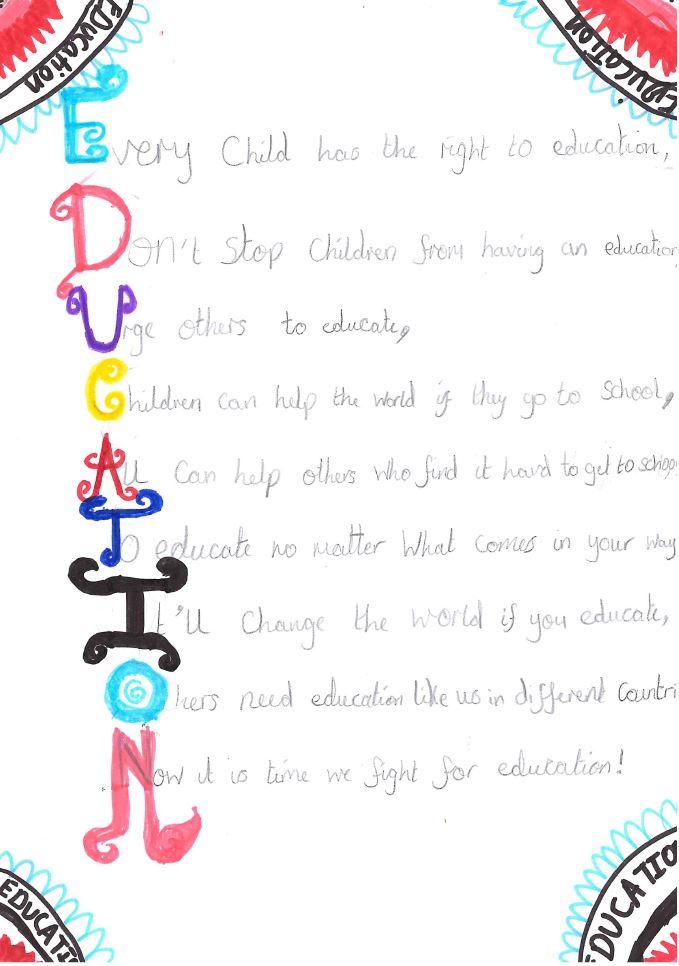 Education
Education
Every Child has the right to education,
Don't Stop Children from having an education
Urge others to educate,
Children can help the world if they go to school,
All Can help others who find it hard to get to schoo
To educate no matter What comes in your way
It'll Change the world if you educate,
Others need education like us in different Countri
Now it is time we fight for education!
EDUCATIO
EDUCATIO